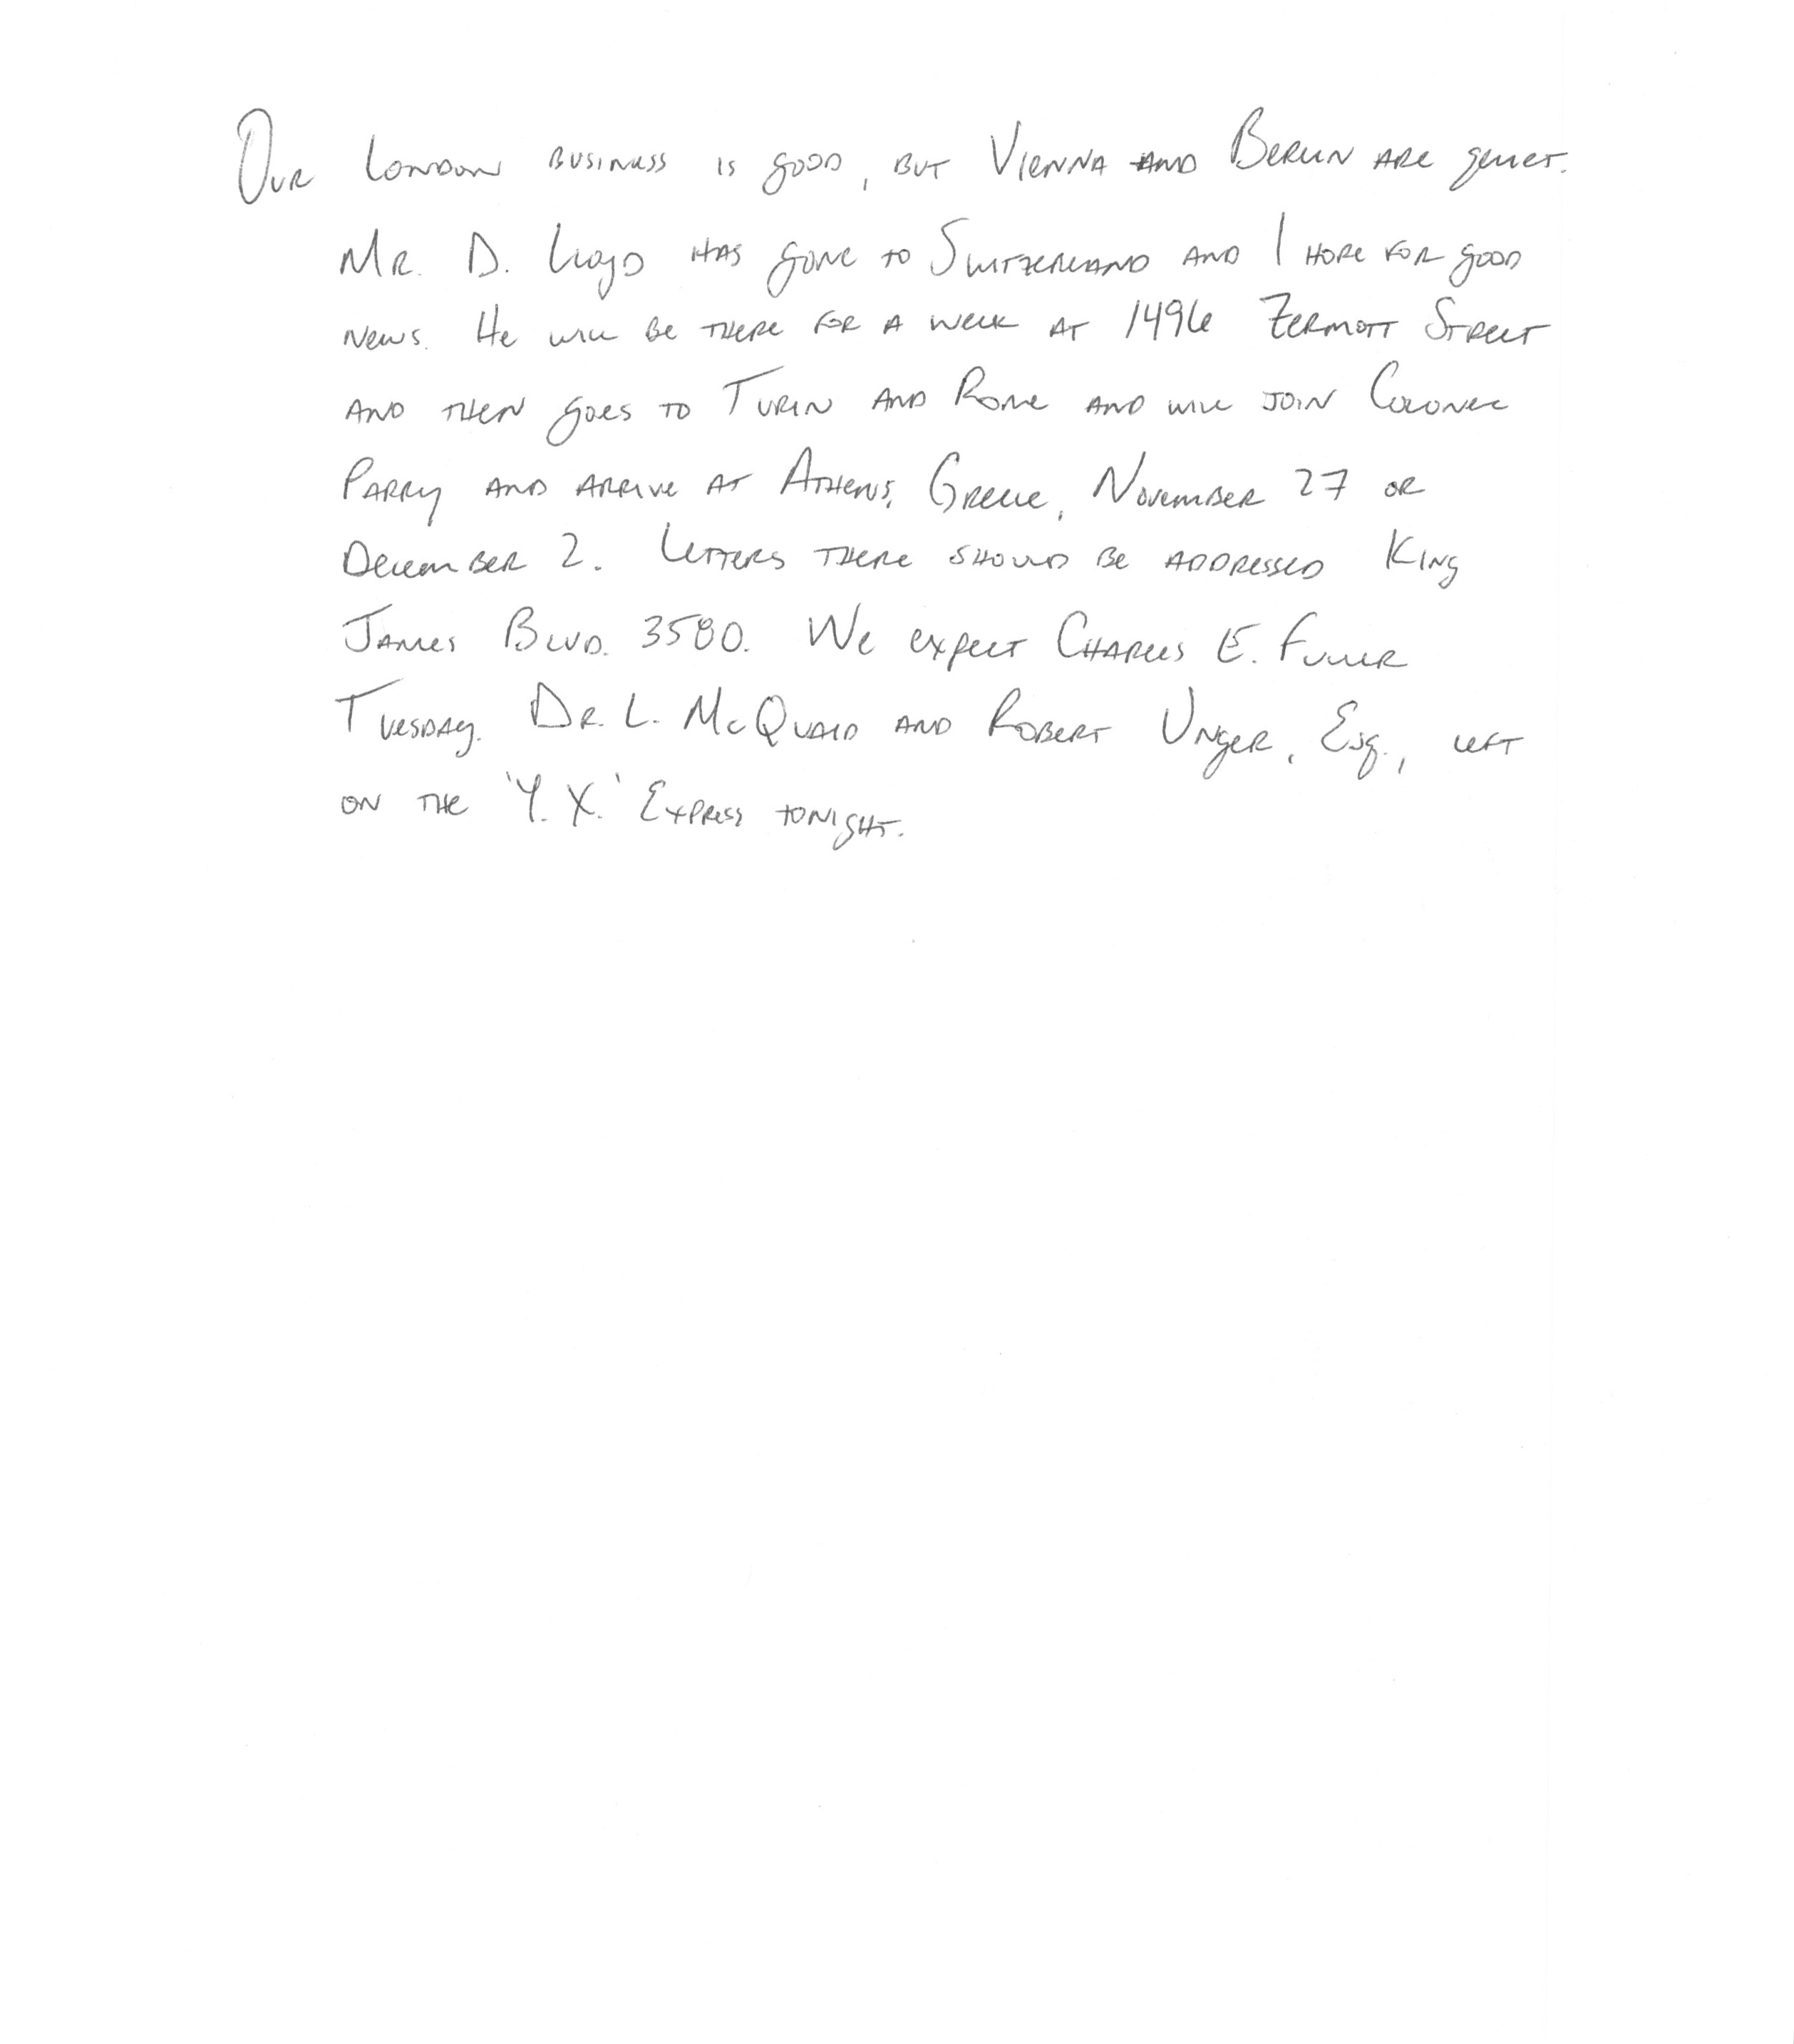 Our London business is good, but Vienna and Berlin are quiet.
Mr. D. Lloyd has gone to Switzerland and I hope for good
news. He will be there for a week at 1496 Zermott Street
and then goes to Turin and Rome and will join Colonel
Parry and arrive at Athens, Greece, November 27 or
December 2. Letters there should be addressed King
James Blvd. 3580. We expect Charles E. Fuller
Tuesday. Dr. L. McQuaid and Robert Unger, Esq., left
on the 'Y.X.' Express tonight.